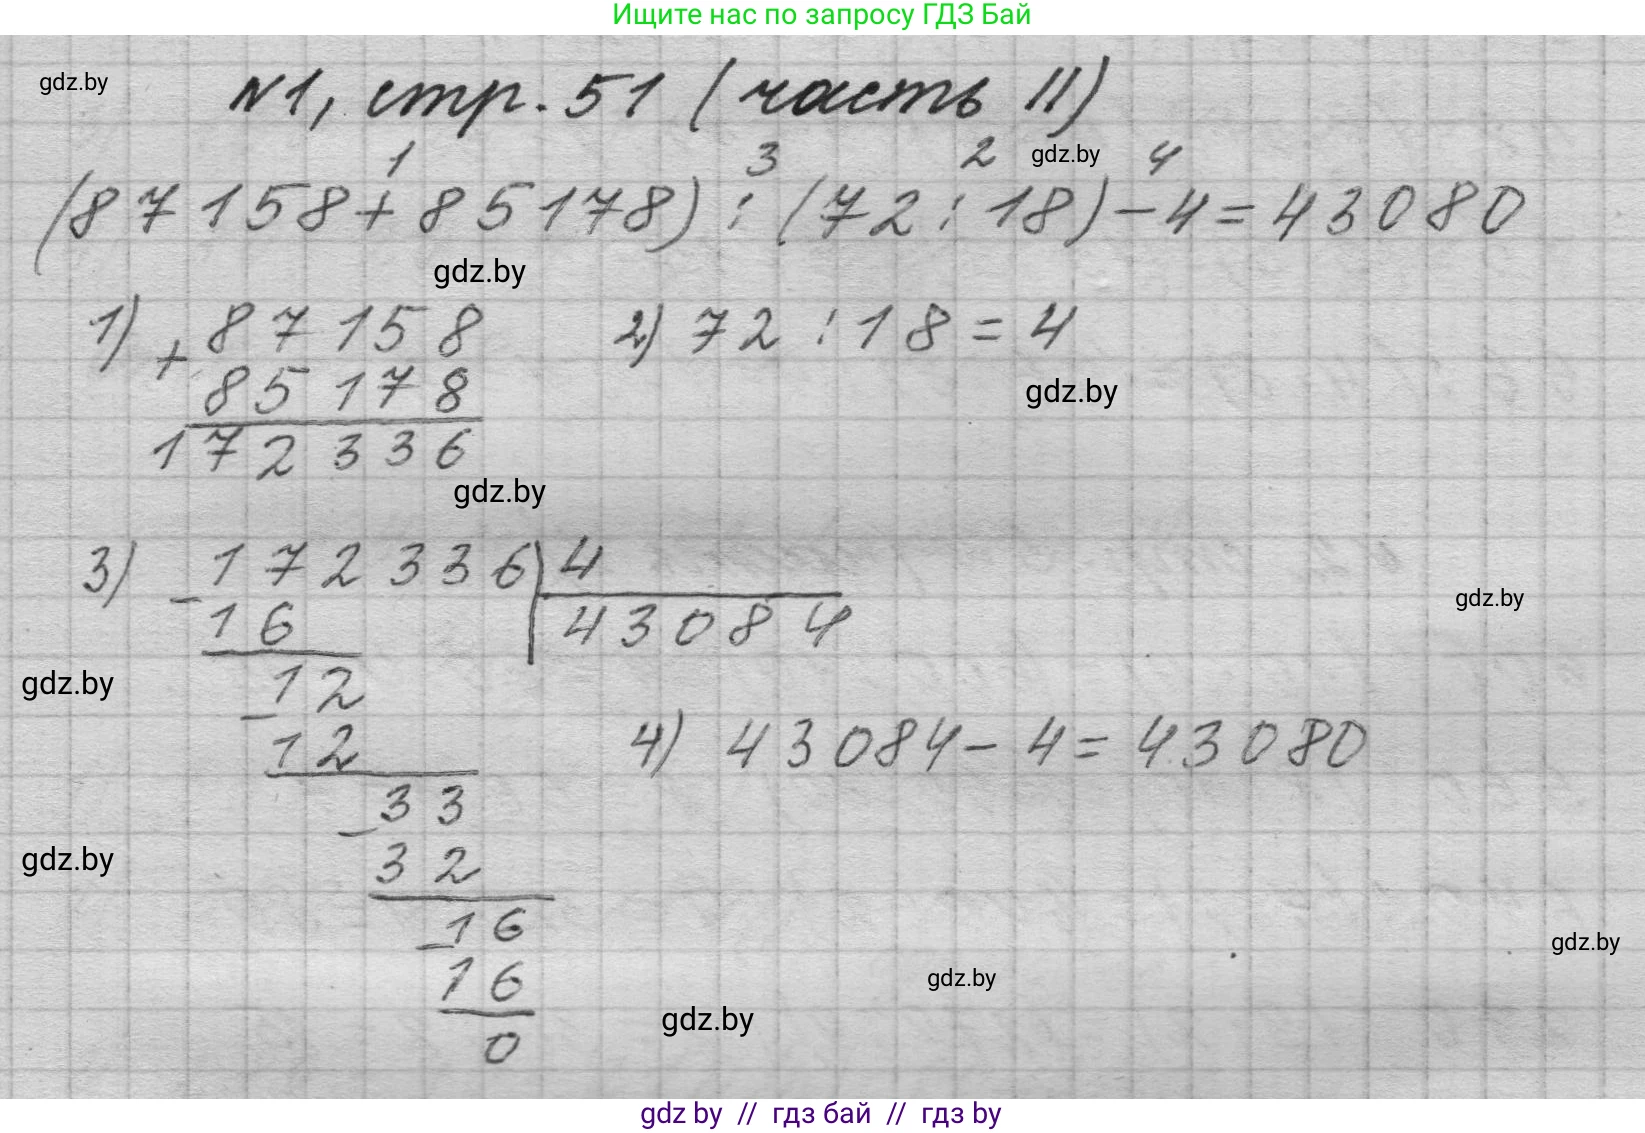 Ищите нас по запросу ГДЗ Бай
gdz.by
№1, стр. 51 (часть II)
1 3 2 gdz.by 4
(87158+85178) : (72 : 18) - 4 = 43080
gdz.by
1) + 87158 2) 72 : 18 = 4
85178 gdz.by
172336
gdz.by
3) - 172336 4
16 43084
gdz.by
gdz.by 12
- 12 4) 43084 - 4 = 43080
- 33
gdz.by 32
- 16 gdz.by
16 gdz.by
gdz.by
0
gdz by // гдз бай // гдз by